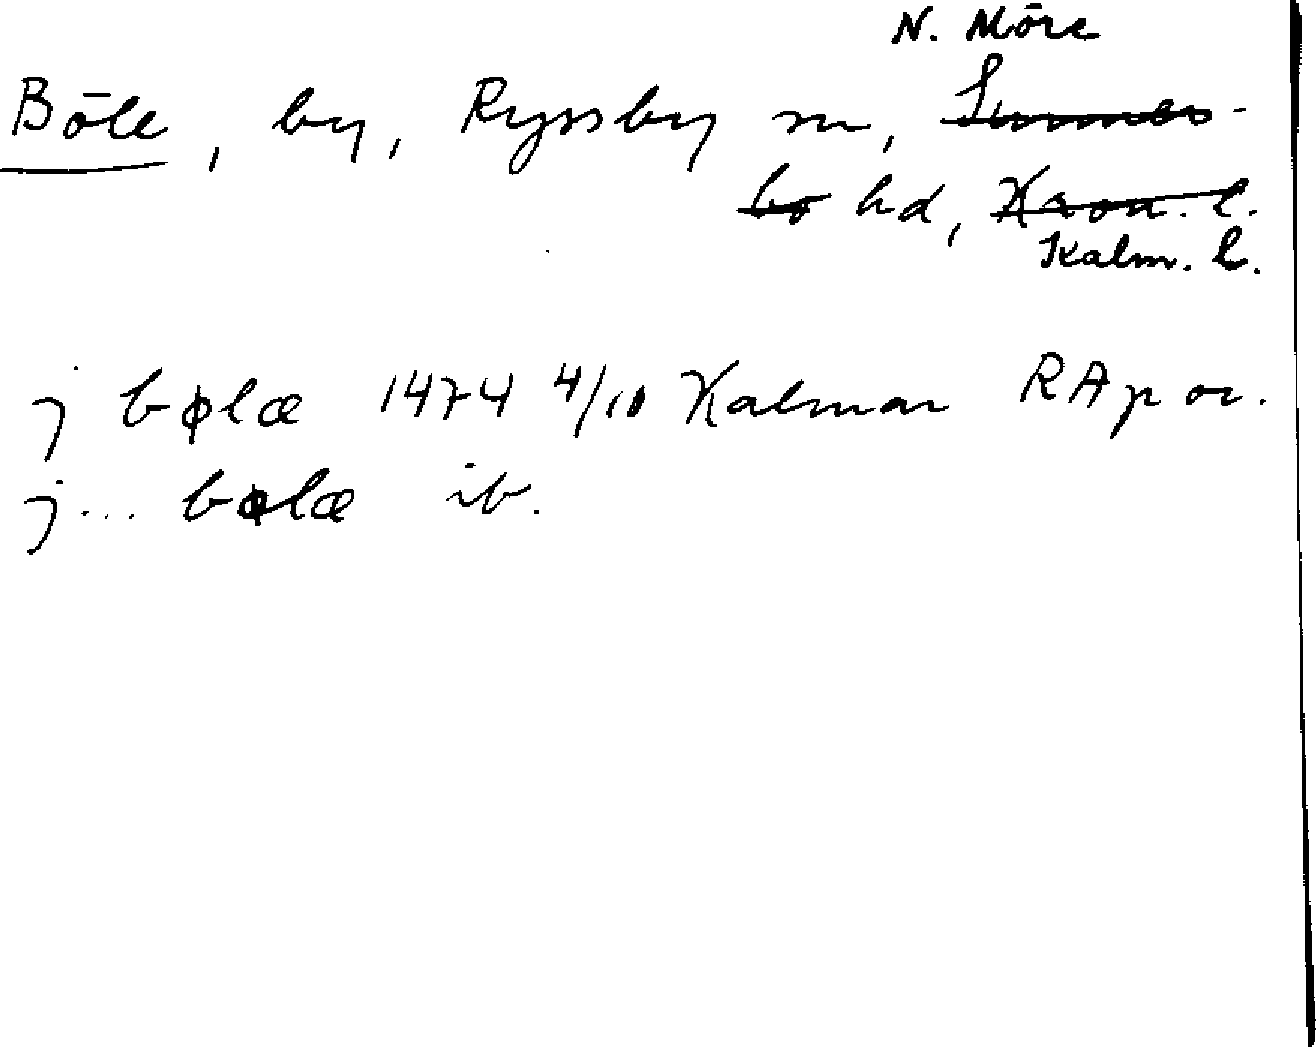 N. Möre
Böle, by, Ryssby sn, Sunnerbo-
bo hd, Kron. l.
Kalm. l.
j bølæ 1474 4/10 Kalmar RAp or.
j... bølæ ib.